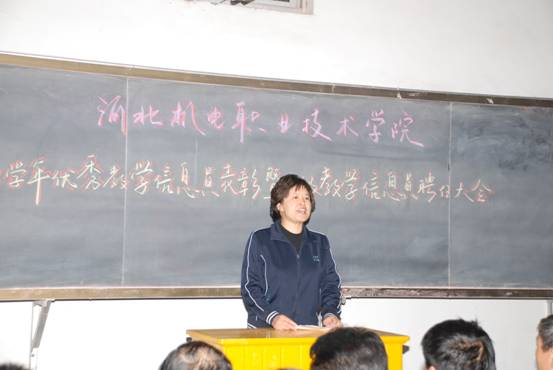 河北机电职业技术学院
学年优秀教学信息员表彰暨教学信息员聘任大会